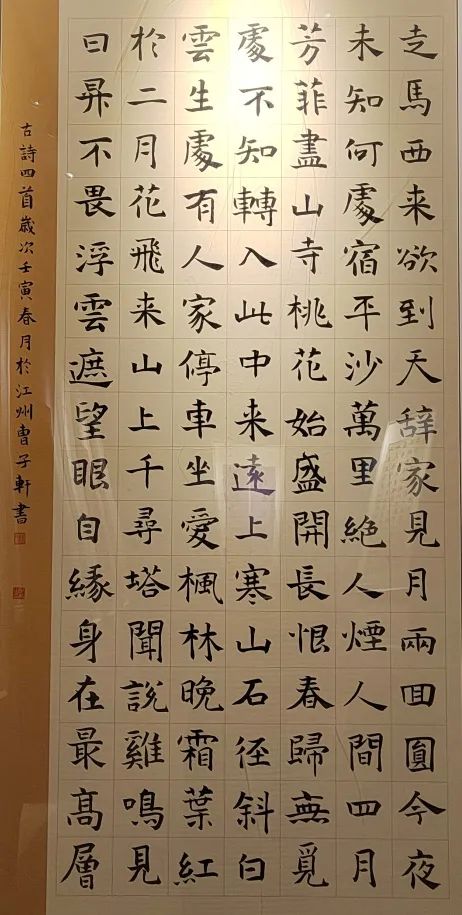 走馬西来欲到天辞家見月兩回圓今夜
未知何處宿平沙萬里絶人煙人間四月
芳菲盡山寺桃花始盛開長恨春歸無覓
處不知轉入此中来遠上寒山石径斜白
雲生處有人家停車坐愛楓林晚霜葉紅
於二月花飛来山上千尋塔聞說雞鳴見
日昇不畏浮雲遮望眼自緣身在最高層
古詩四首歲次壬寅春月於江州曹子軒書